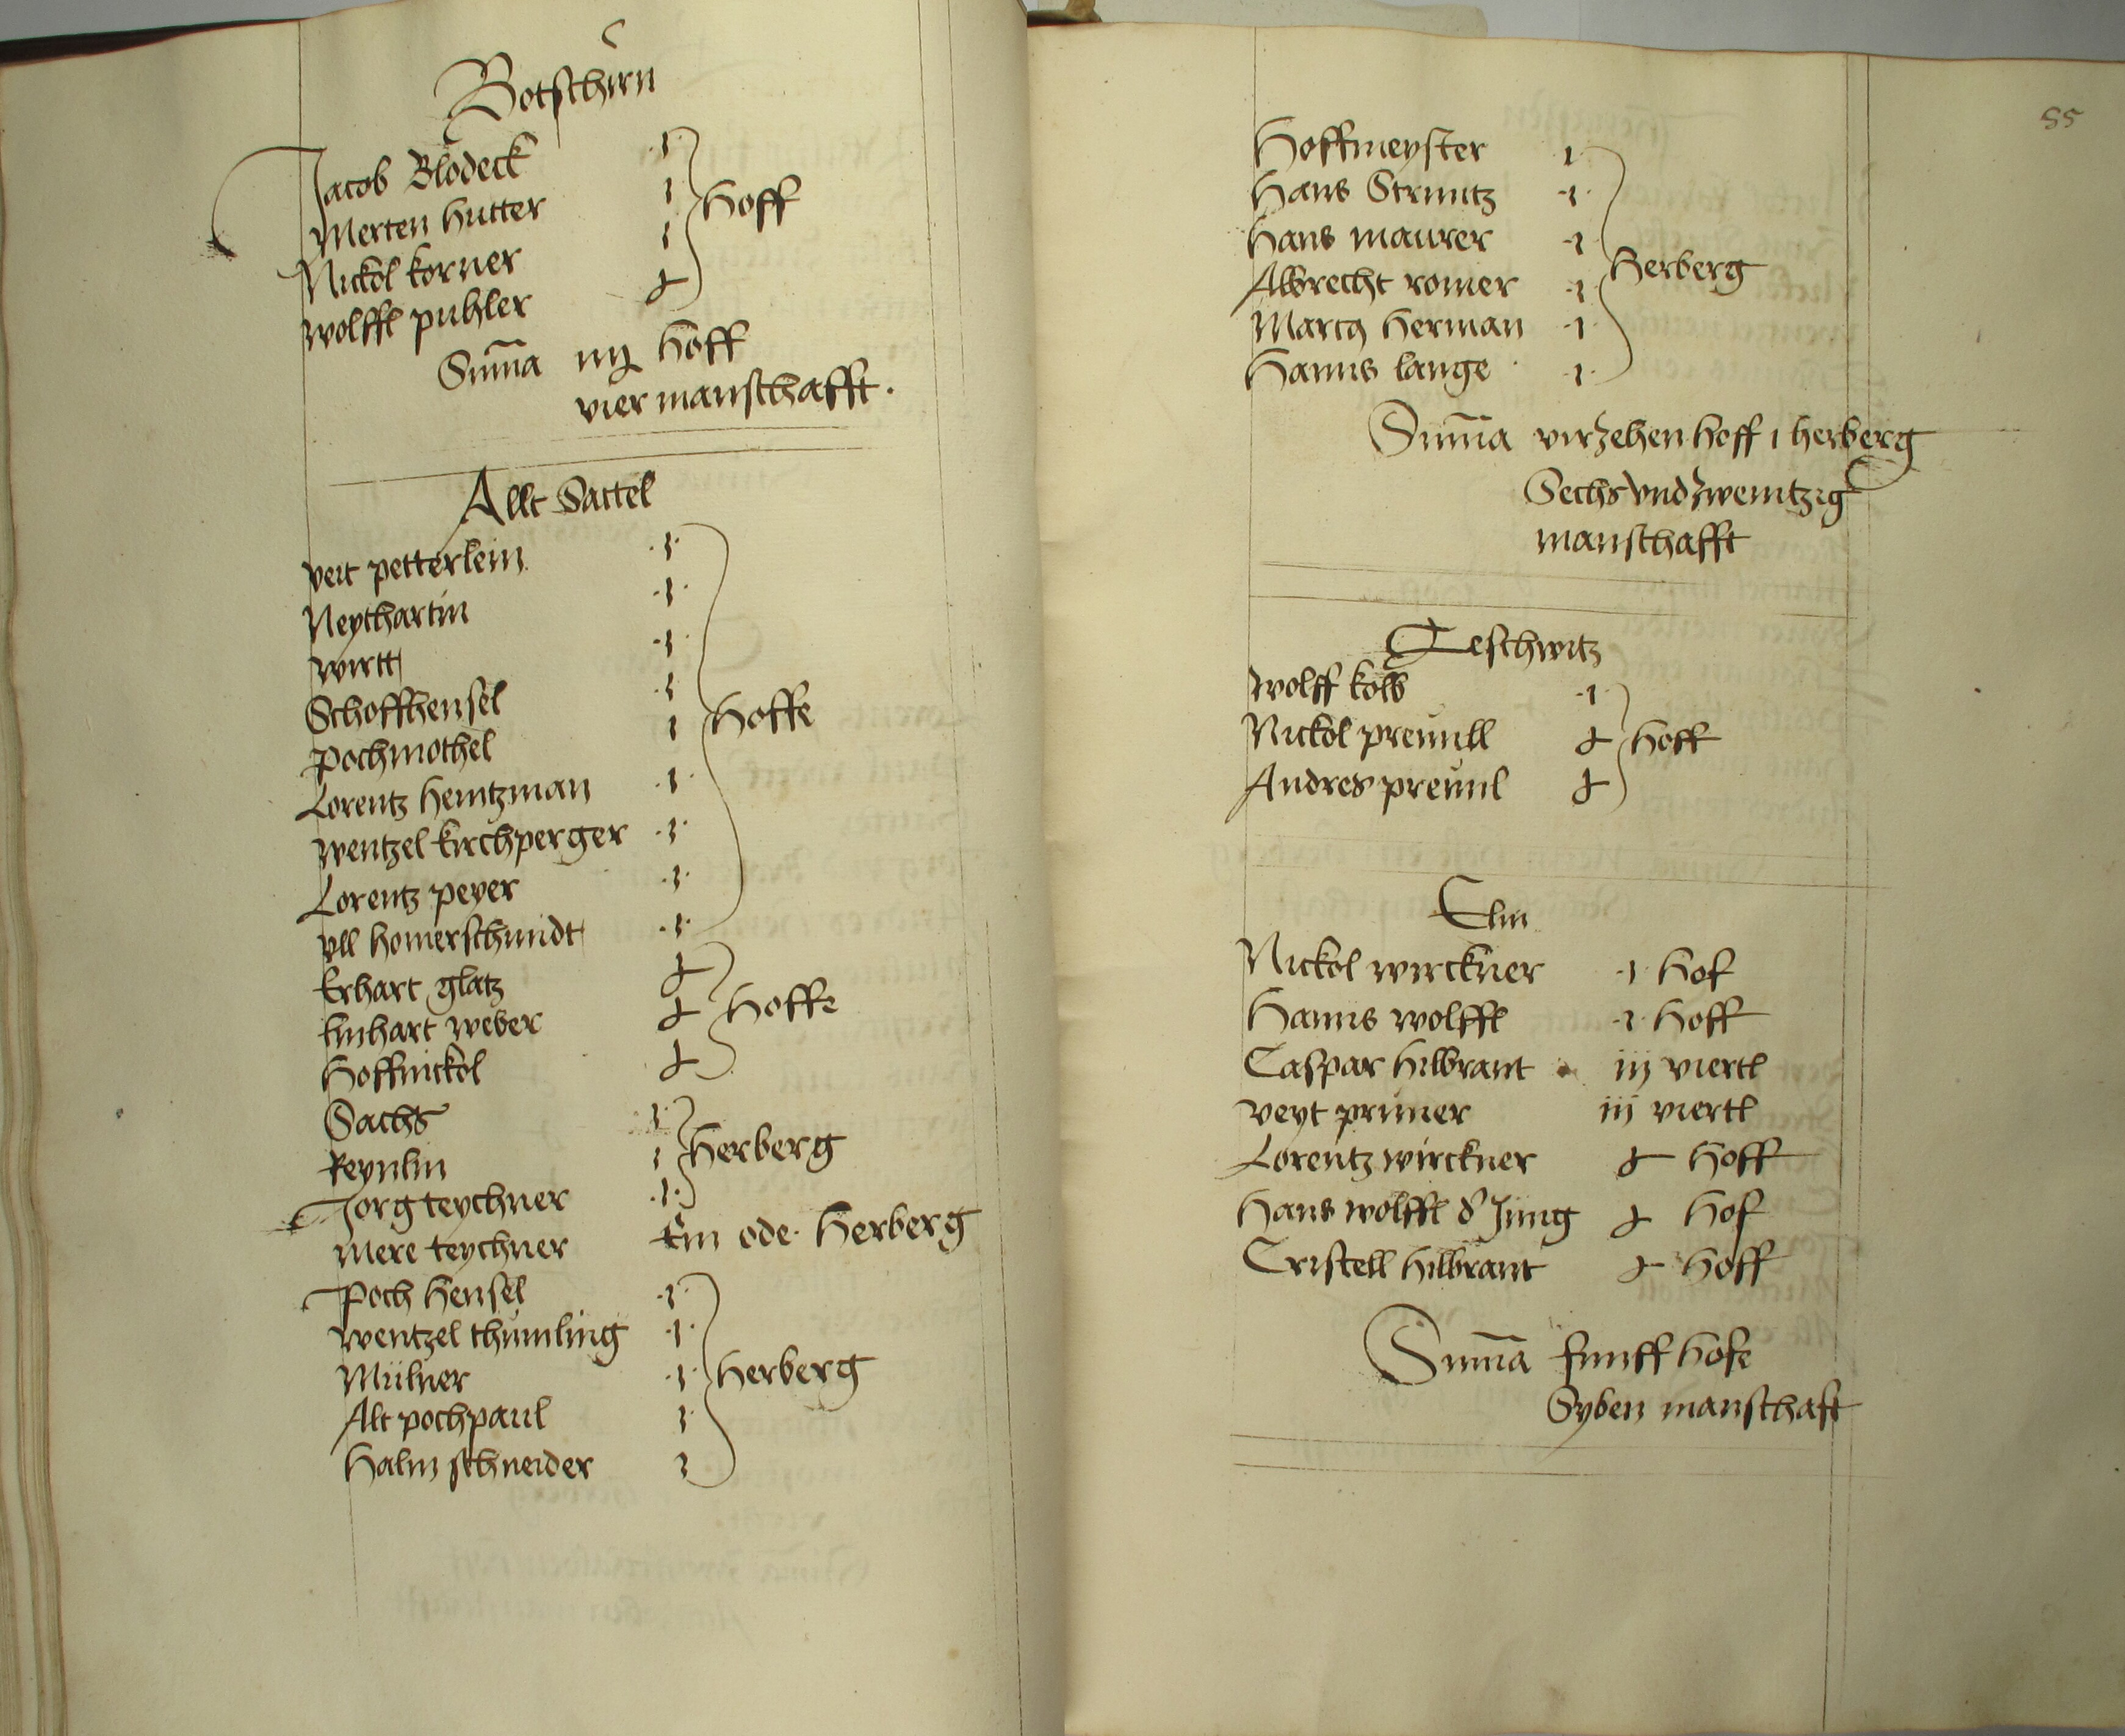 Botschirn
Jacob Blodeck 1
Merten hutter 1
Nickol korner 1
wolffl puhler ½
Hoff
Sum̄a iiij Hoff
vier manschafft.
Allt Sattel
veit petterlein .1.
Neythartin .1.
wirtt .1.
Schoffhensel .1.
pochmothel 1
Lorentz heintzman .1.
wentzel kirchperger .1.
Lorentz peyer .1.
vll homerschmidt .1.
Hoffe
Erhart glatz ½
Einhart weber ½
Hoffnickol ½
Hoffe
Sachs 1
Reynlin 1
Jorg teychner .1.
Herberg
Mere teychner Ein ode Herberg
Poch Hensel .1.
wentzel thumling .1.
Mulner .1.
Alt pochpaul 1
Halm schneider 1
Herberg
55
Hoffmeyster 1
Hans Struntz .1.
Hans maurer .1
Albrecht romer .1
Marcq Herman .1.
Hanns lange .1.
Herberg
Sum̄a virzehen Hoff 1 herberg
Sechs vnd zweintzig
manschafft
Teschwitz
wolff kolb .1
Nickol preunll ½
Andres preunl ½
Hoff
Elm
Nickol wirckner .1. Hof
Hanns wolffl .1. Hoff
Caspar hilbrant iij viertl
veyt pruner iij viertl
Lorentz wirckner ½ Hoff
Hans wolffl d' Jung ½ Hof
Cristell hilbrant ½ Hoff
Sum̄a funff Hofe
Syben manschaft